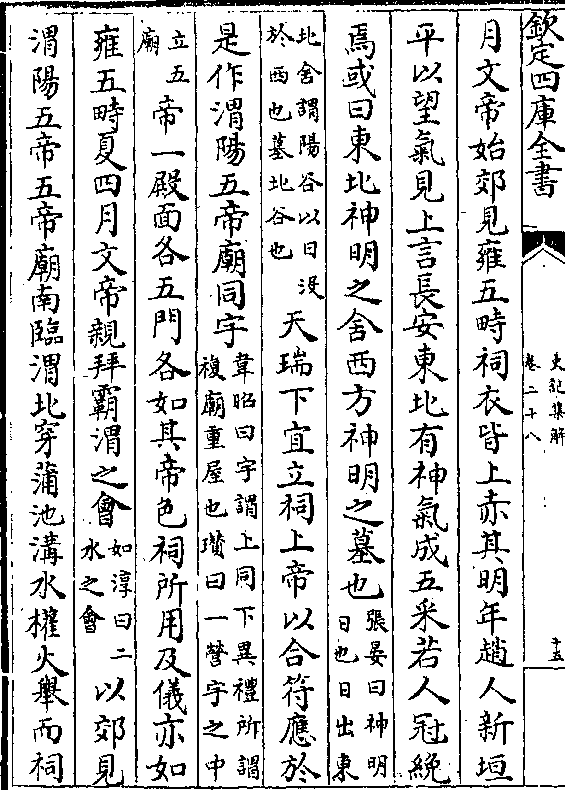 欽定四庫全書
史記集解
卷二十八
十五
月文帝始郊見雍五畤祠衣皆上赤其明年趙人新垣
平以望氣見上言長安東北有神氣成五采若人冠絻
焉或曰東北神明之舍西方神明之墓也張晏曰神明
日也日出東
北舍謂陽谷以日沒
於西也墓北谷也天瑞下宜立祠上帝以合符應於
是作渭陽五帝廟同宇韋昭曰宇謂上同下異禮所謂
複廟重屋也瓚曰一營宇之中
立五
廟帝一殿面各五門各如其帝色祠所用及儀亦如
雍五畤夏四月文帝親拜霸渭之會如淳曰二
水之會以郊見
渭陽五帝五帝廟南臨渭北穿蒲池溝水權火舉而祠